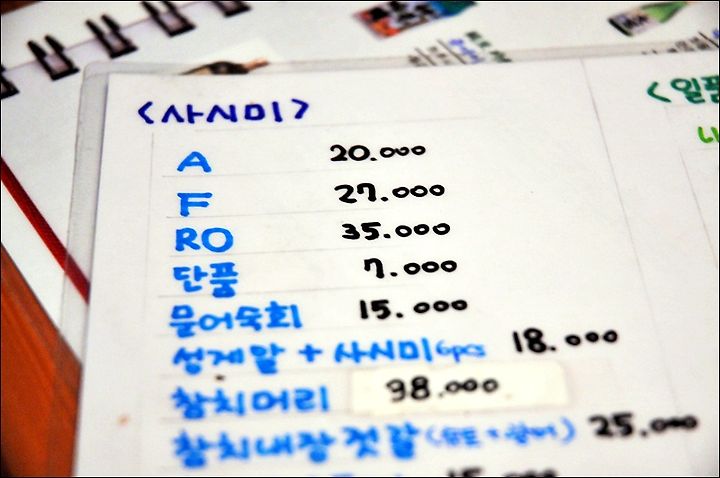 <사시미>
A 20.000
F 27.000
RO 35.000
단풍 7.000
문어숙회 15.000
성게알 + 사시미 6pcs 18.000
참치머리 38.000
참치내장젓갈 25.000
15.000
<일품